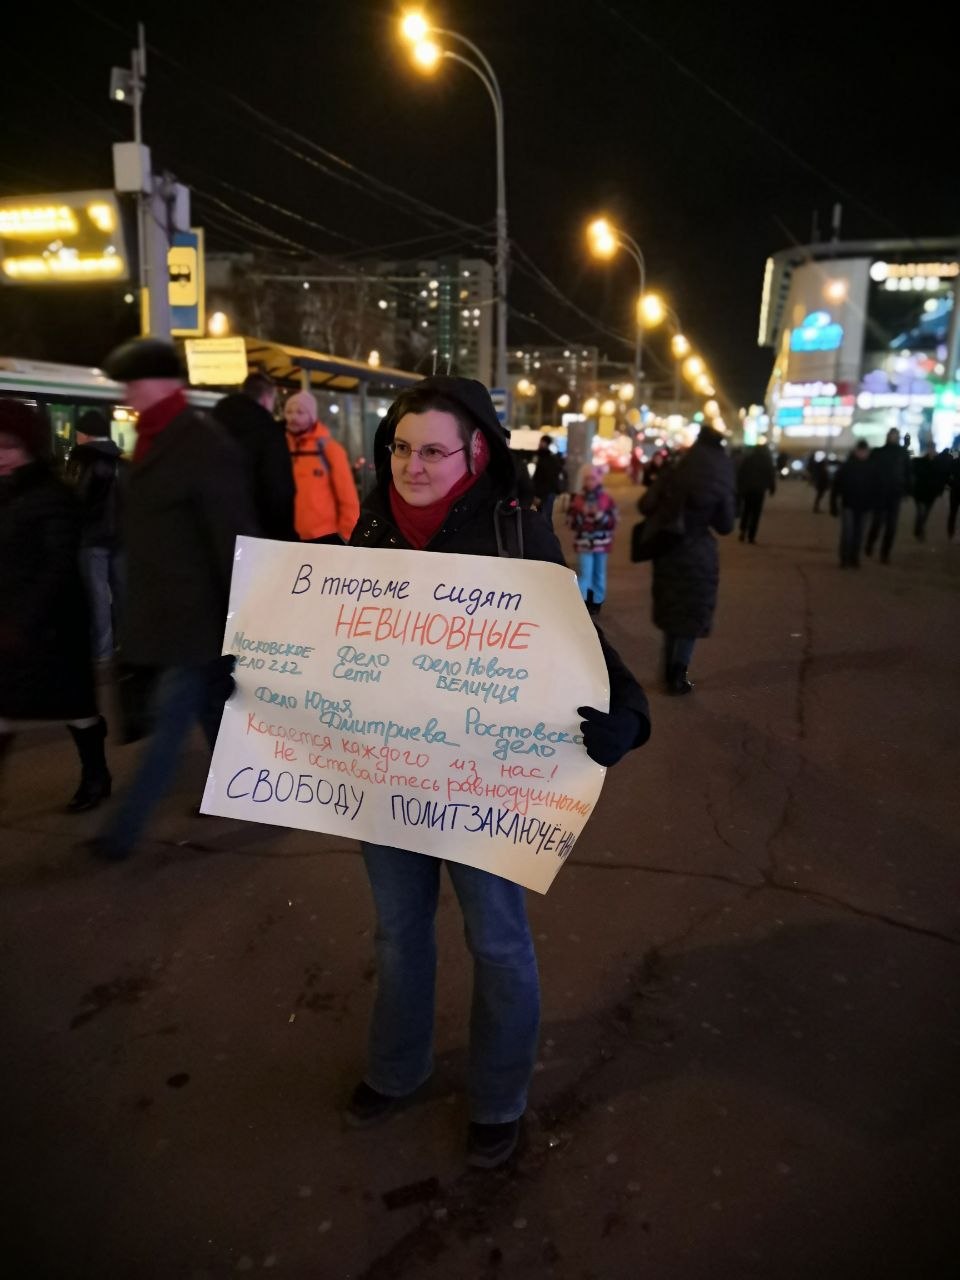 В тюрьме сидят
НЕВИНОВНЫЕ
Московское дело 212
Дело Сети
Дело Нового ВЕЛИЧИЯ
Дело Юрия Дмитриева
Ростовско дело
Касается каждого из нас!
Не оставайтесь равнодушными
СВОБОДУ ПОЛИТЗАКЛЮЧЁНН